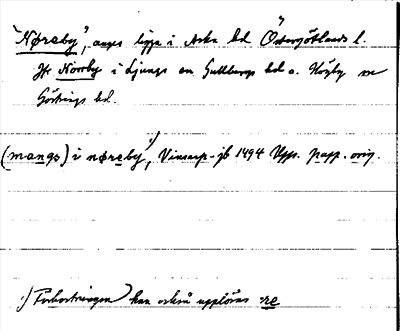 "Nøreby", anges ligga i Aska hd Östergötlands l.
Jfr Norrby i Ljungs sn Gullbergs hd o. Högby sn
Göstrings hd.
(mangs) i nøreby 1), Vinsarp-jb 1494 Upps. papp. orig.
1) Förkortningen kan också upplösas -re